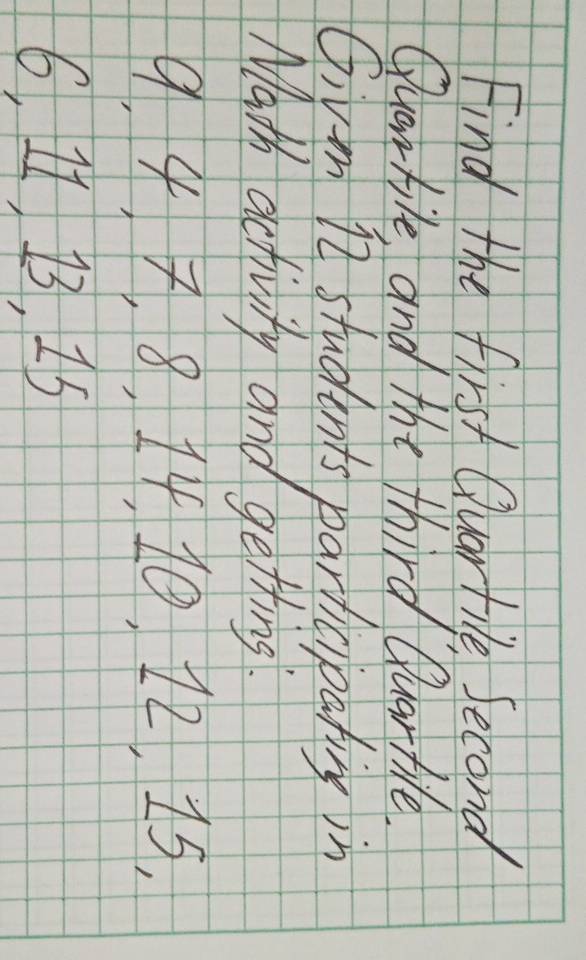 Find the first Quartile, Second
Quartile and the third Quartile.
Given 12 students participating in
Math activity and getting:
9, 4, 7, 8, 14, 10, 12, 15,
6, 11, 13, 15